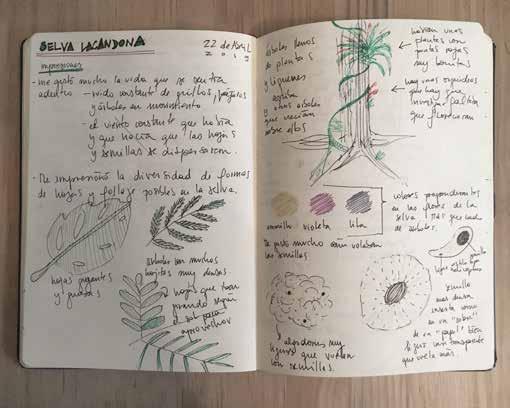 SELVA LACANDONA
22 de Abril
2019
impresiones
- me gustó mucho la vida que se sentía
adentro - ruido constante de grillos, pájaros
y árboles en movimiento
- el viento constante que había
y que hacía que las hojas
y semillas se dispersaran.
- Me impresionó la diversidad de formas
de hojas y follaje posibles en la selva.
hojas gigantes
y
árboles con muchas
hojitas muy densas
hojas que van
girando según
el sol para
aprovechar
árboles llenos
de plantas
y líquenes
y otros árboles
que crecían
sobre ellos
habían unas
plantas con
puntas rojas
muy bonitas
hay unas orquídeas
que hay que
falta
que florecieran
amarillo violeta lila
colores
en las flores de la
selva más que nada
de árboles.
Me gustó mucho cómo volaban
las semillas
algodones muy
ligeros que vuelan
con semillas.
semilla
más densa
inserta como
en un "sobre"
de un "papel" bien
ligero casi transparente
que vuela más.